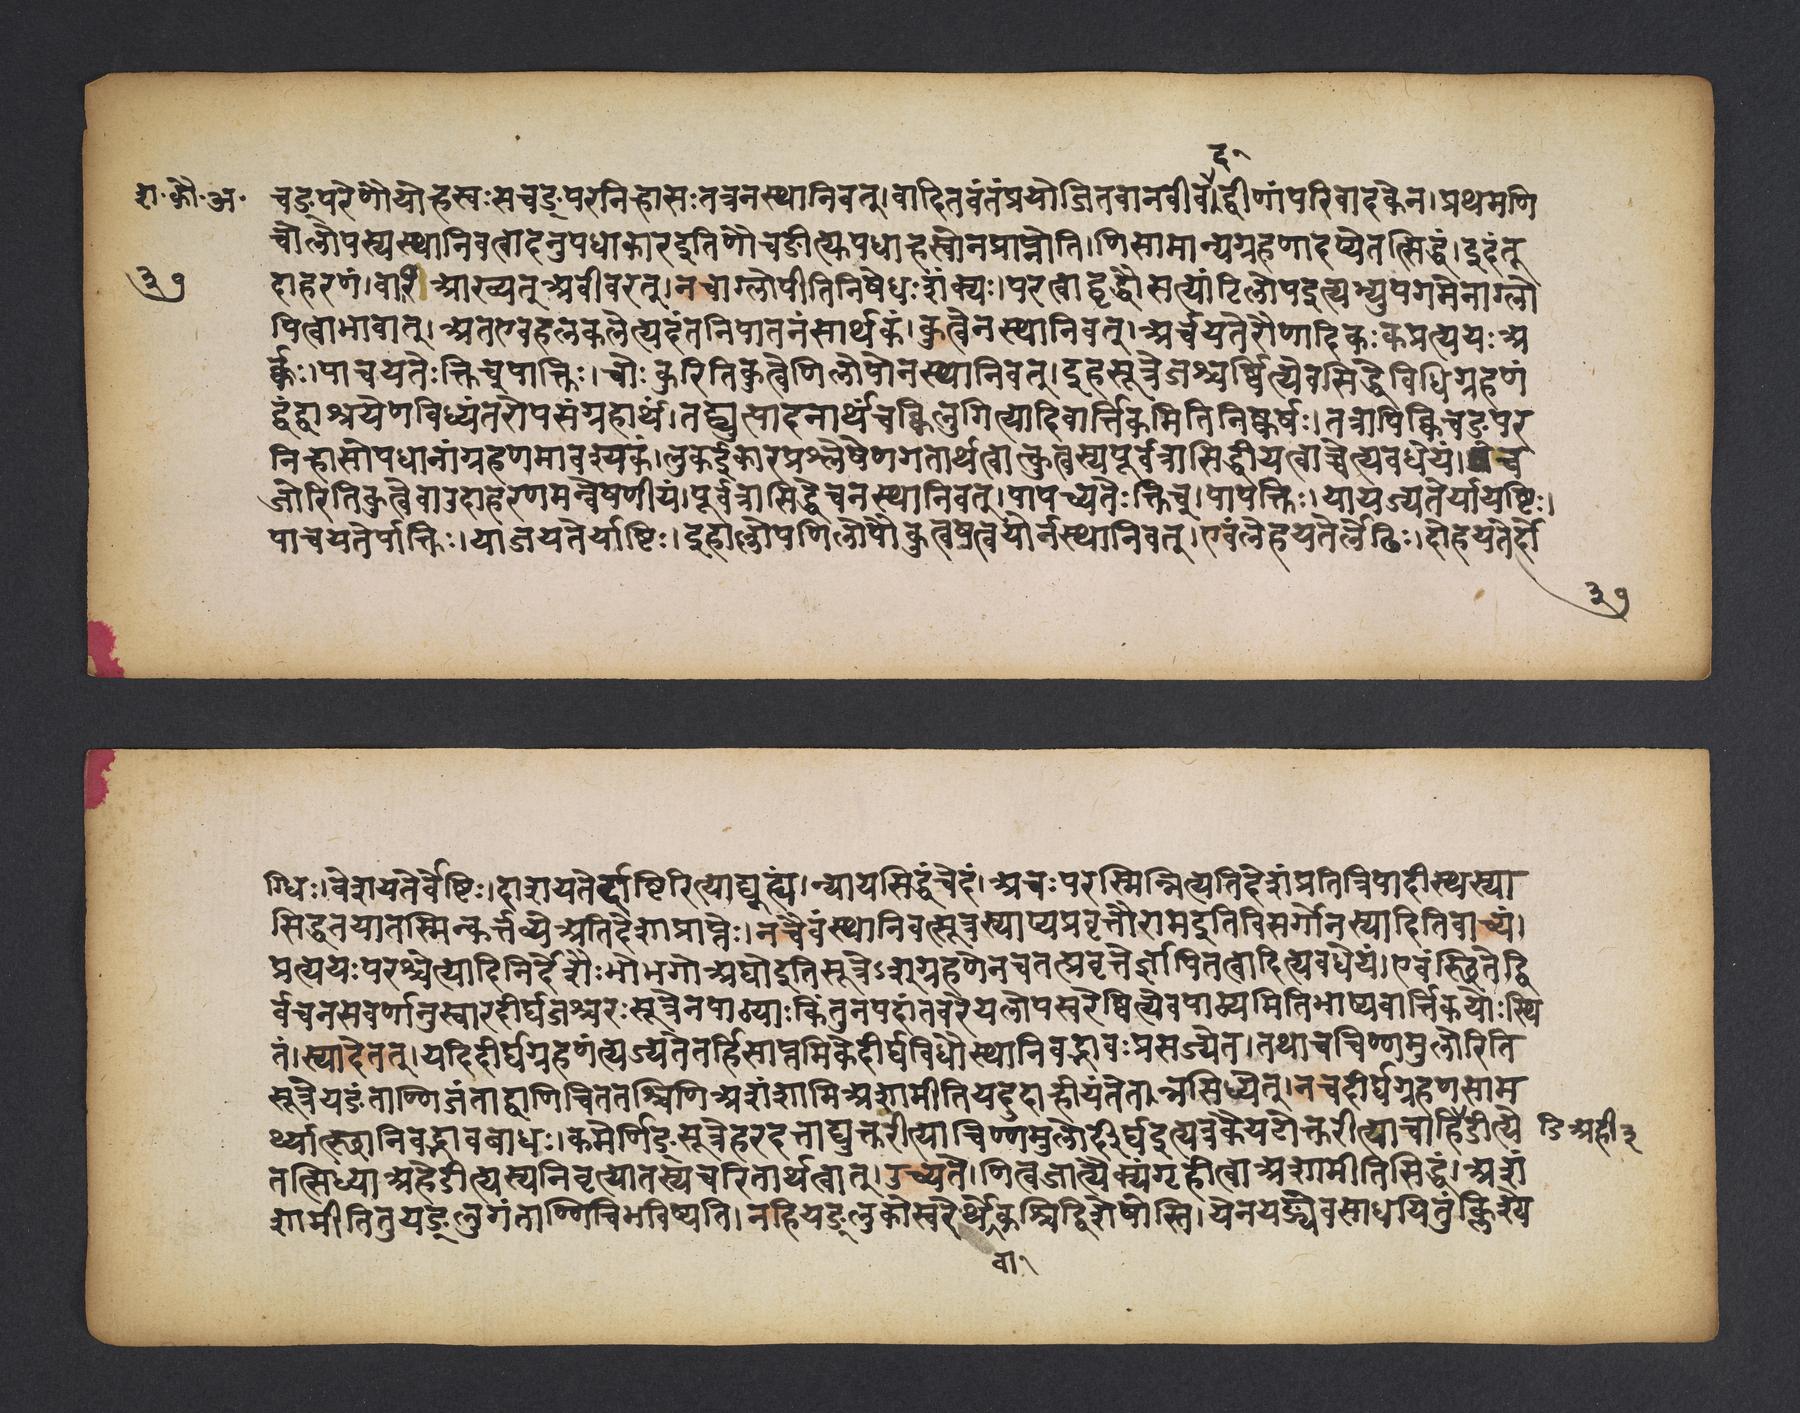 द१
श॰ कौ॰ अ॰
३७
चङ्परेणौयोह्रस्वःसचङ्परनिर्ह्रासःतत्रनस्थानिवत्।वादितवंतंप्रयोजितवानवीवदद्वीणांपरिवादकेन।प्रथमणि
चोलोपस्यस्थानिवत्वादनुपधाकारइतिणौचङीत्युपधाह्रस्वोनप्राप्नोति।णिसामान्यग्रहणादप्येतत्सिद्धं।इदंतू
दाहरणं।वारि आख्यत्अवीवरत्।नचाग्लोपीतिनिषेधःशंक्यः।परत्वाद्वृद्धौसत्यांटिलोपइत्यभ्युपगमेनाग्लो
पित्वाभावात्।अतएवहलकलेत्यदंतनिपातनंसार्थकं।कुत्वेनस्थानिवत्।अर्चयतेरौणादिकःकप्रत्ययःअ
र्क्कः।पाचयतेःक्तिच्पाक्तिः।चोःकुरितिकुत्वेणिलोपोनस्थानिवत्।इहसूत्रेजश्चर्ष्वित्येवसिद्धेविधिग्रहणं
द्वंद्वाश्रयेणविध्यंतरोपसंग्रहार्थं।तद्व्युत्पादनार्थंचक्विलुगित्यादिवार्त्तिकमितिनिष्कर्षः।तत्रापिक्विचङ्पर
निर्ह्रासोपधानांग्रहणमावश्यकं।लुकईकारप्रश्लेषेणगतार्थत्वात्कुत्वस्यपूर्वत्रासिद्धीयत्वाच्चेत्यवधेयं। च
जोरितिकुत्वेवाउदाहरणमन्वेषणीयं।पूर्वत्रासिद्धेचनस्थानिवत्।पापच्यतेःक्तिच्।पापक्तिः।यायज्यतेर्यायष्टिः।
पाचयतेर्पाक्तिः।याजयतेर्याष्टिः।इहाल्लोपणिलोपौकुत्वषत्वयोर्नस्थानिवत्।एवंलेहयतेर्लेढिः।दोहयतेर्दो
३७
ग्धिः।वेशयतेर्वेष्टिः।दाशयतेर्द्दाष्टिरित्याद्यूह्यं।न्यायसिद्धंचेदं।अचःपरस्मिन्नित्यतिदेशंप्रतित्रिपादीस्थस्या
सिद्धतयातस्मिन्कर्त्तव्येअतिदेशाप्राप्तेः।नचैवंस्थानिवत्सूत्रस्याप्यप्रवृत्तौरामइतिविसर्गोनस्यादितिवाच्यं।
प्रत्ययःपरश्चेत्यादिनिर्द्देशैःभोभगोअघोइतिसूत्रेऽशग्रहणेनचतत्प्रवृत्तेर्ज्ञापितत्वादित्यवधेयं।एवंस्थितेद्वि
र्वचनसवर्णानुस्वारदीर्घजश्चरःसूत्रेनपाठ्याःकिंतुनपदांतवरेयलोपस्वरेष्वित्येवपाठ्यमितिभाष्यवार्त्तिकयोःस्थि
तं।स्यादेतत्।यदिदीर्घग्रहणंत्यज्येततर्हिसाप्तमिकेदीर्घविधौस्थानिवद्भावःप्रसज्येत।तथाचचिण्णमुलोरिति
सूत्रेयङंताण्णिजंताद्वाणिचिततश्चिणिअशंशामिअशामीतियदुदाह्रीयंतेतन्नसिध्येत्।नचदीर्घग्रहणसाम
र्थ्यात्स्थानिवद्भावबाधः।कमेर्णिङ्सूत्रेहरदत्ताद्युक्तरीत्याचिण्णमुलोर्दीर्घइत्यत्रकैयटोक्तरीत्याचाहिडीत्ये
डिअहीड
तत्सिध्याअहेडीत्यस्यनिवृत्यातस्यचरितार्थत्वात्।उच्यते।णित्वजात्यैक्यंगृहीत्वाअशामीतिसिद्धं।अशं
शामीतितुयङ्लुगंताण्णिचिभविष्यति।नहियङ्लुकोस्वरेर्थेकश्चिद्विशेषोस्ति।येनयङ्येवसाधयितुंक्लिश्ये
वा१